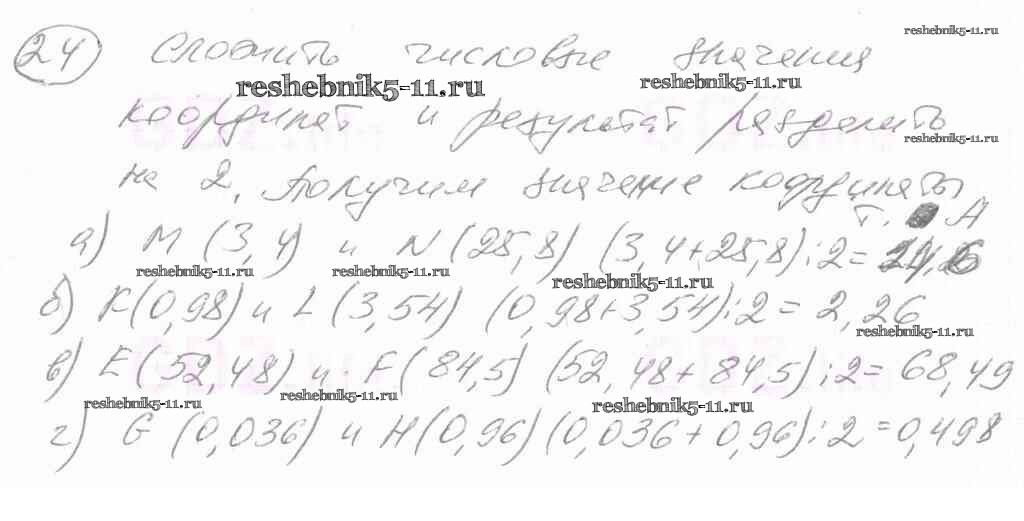 24 сложить числовые значения
reshebnik5-11.ru
reshebnik5-11.ru
reshebnik5-11.ru
координат и результат разделить
reshebnik5-11.ru
на 2. Получим значение координаты
т. А
а) M (3,4) и N (25,8) (3,4+25,8):2=
reshebnik5-11.ru
reshebnik5-11.ru
reshebnik5-11.ru
б) K(0,98) и L (3,54) (0,98+3,54):2= 2,26
reshebnik5-11.ru
в) E (52,48) и F(84,5) (52,48+84,5):2= 68,49
reshebnik5-11.ru
reshebnik5-11.ru
reshebnik5-11.ru
г) G (0,036) и H(0,96) (0,036+0,96):2=0,498